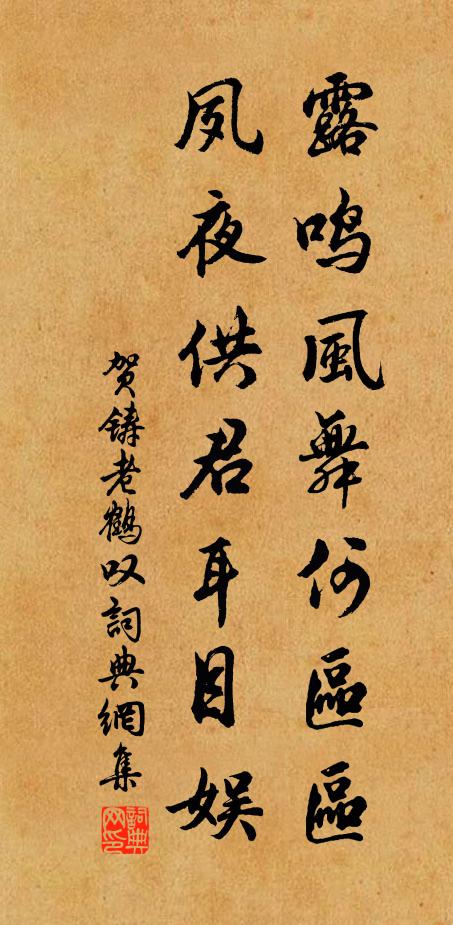 露鳴風舞何區區
夙夜供君耳目娱
贺鑄老鶴叹詞典網集
詞典网印